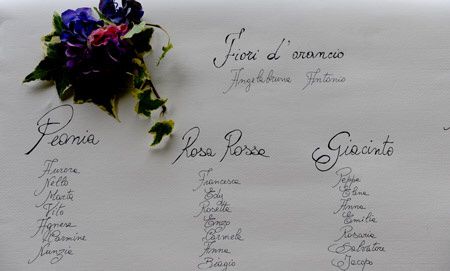 Fiori d'arancio
Angelabruna Antonio
Peonia
Aurora
Nello
Marta
Vito
Agnese
Carmine
Nunzia
Rosa Rossa
Francesca
Edy
Rosetta
Enzo
Carmela
Anna
Biagio
Giacinto
Peppe
Elena
Anna
Emilia
Rosaria
Salvatore
Jacopo